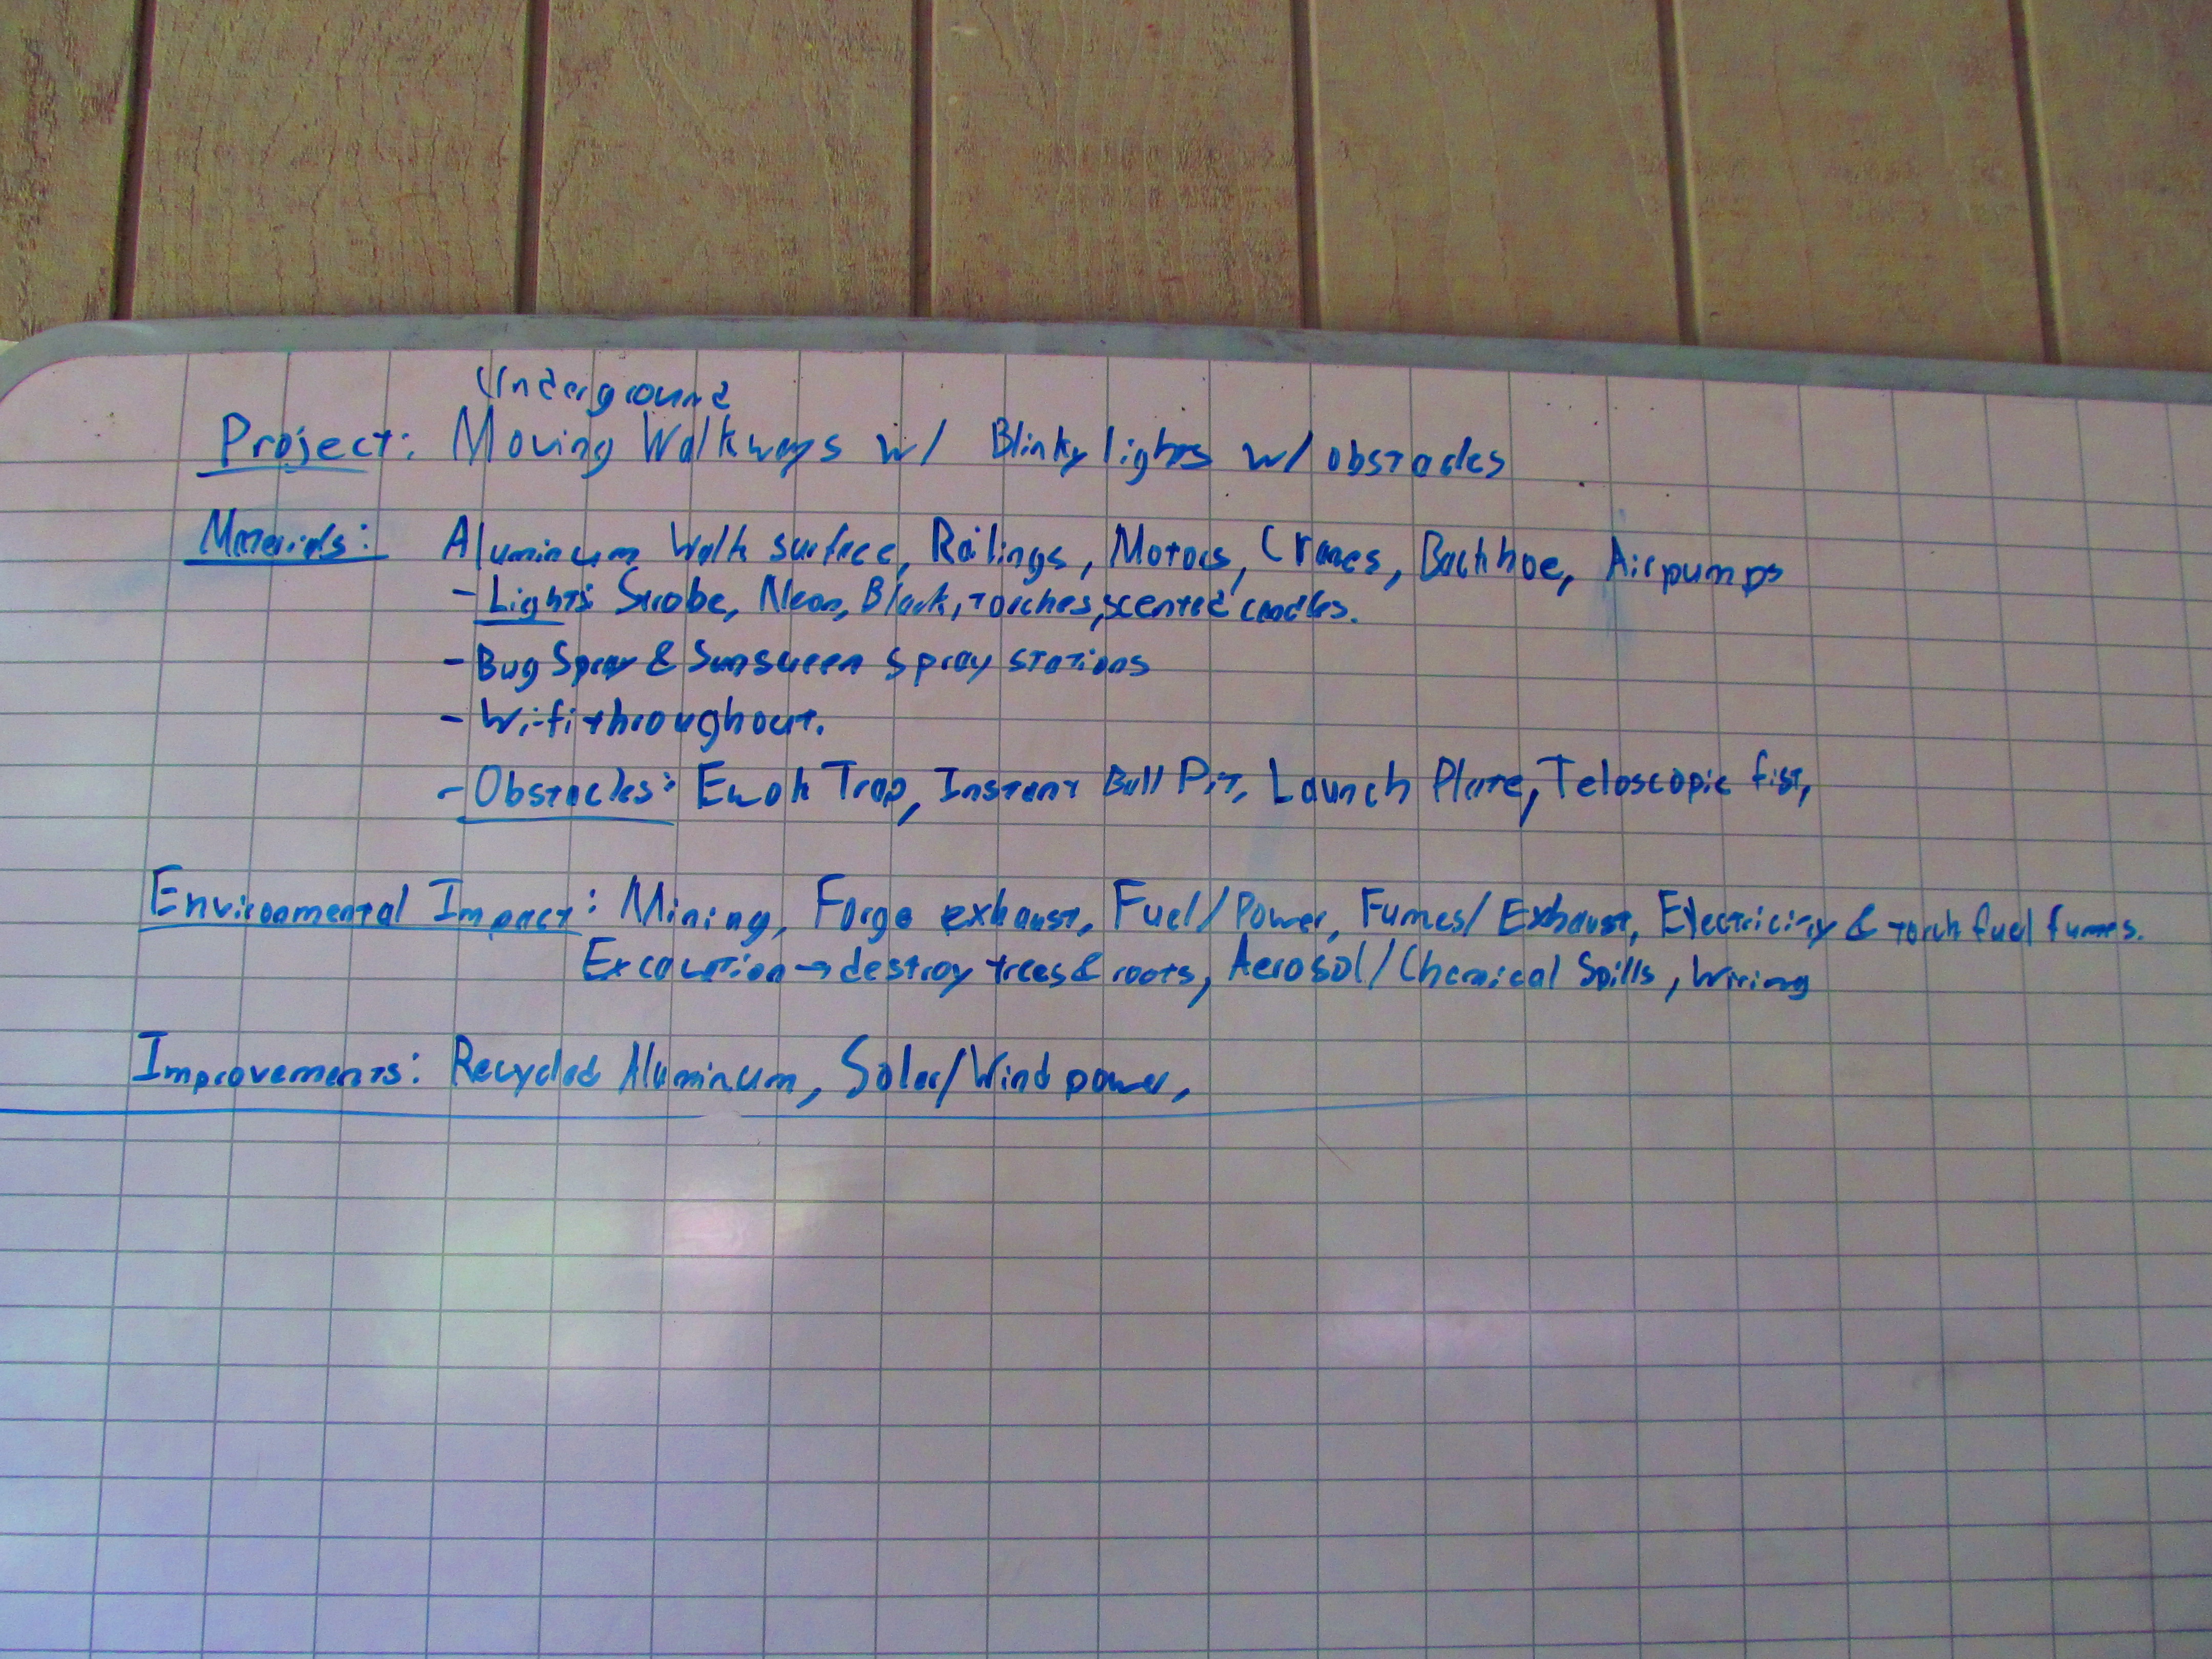 Underground
Project: Moving Walkways w/ Blinky lights w/ obstacles
Materials: Aluminum Walk surface, Railings, Motors, Cranes, Backhoe, Air pumps
- Lights: Strobe, Neon, Black, torches, scented candles.
- Bug Spray & Sunscreen Spray stations
- Wi-fi throughout.
- Obstacles: Ewok Trap, Instant Ball Pit, Launch Plate, Teloscopic fist,
Enviromental Impact: Mining, Forge exhaust, Fuel/Power, Fumes/Exhaust, Electricity & torch fuel fumes.
Excavation → destroy trees & roots, Aerosol/Chemical Spills, Wiring
Improvements: Recycled Aluminum, Solar/Wind power,